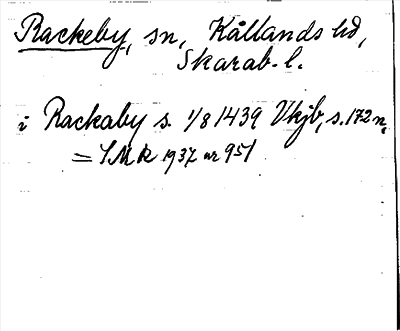 Rackeby, sn, Kållands hd,
Skarab. l.
i Rackaby s. 1/8 1439 Vkjb, s. 172 n,
= SMR 1937 nr 951